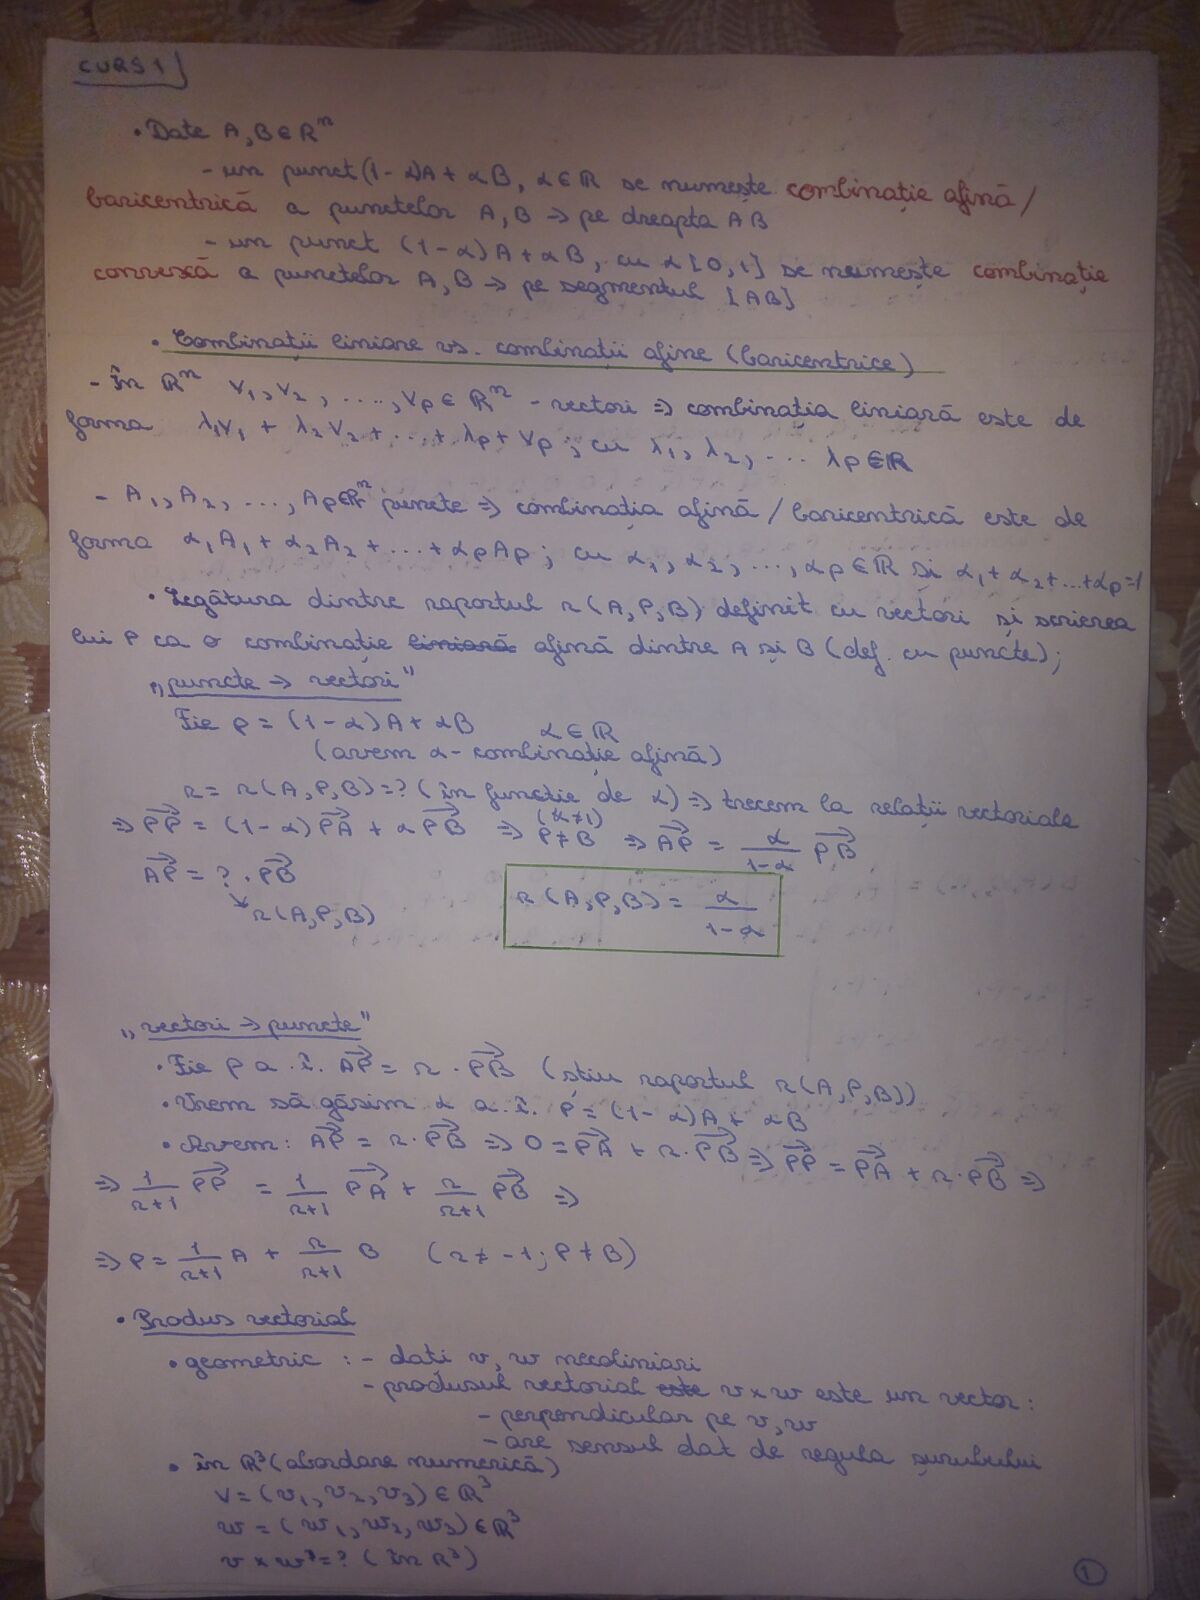 CURS 1
• Date A, B ∈ Rⁿ
- un punct (1-α)A + αB, α ∈ R se numește combinație afină/
baricentrică a punctelor A, B → pe dreapta AB
- un punct (1-α)A + αB, cu α [0,1] se numește combinație
convexă a punctelor A, B → pe segmentul [AB]
• Combinații liniare vs. combinații afine (baricentrice)
- În Rⁿ v₁, v₂, ...., vₚ ∈ Rⁿ - vectori ⇒ combinația liniară este de
forma λ₁v₁ + λ₂v₂ + ... + λₚ + vₚ ; cu λ₁, λ₂, ... λₚ ∈ R
- A₁, A₂, ..., Aₚ ∈ Rⁿ puncte ⇒ combinația afină / baricentrică este de
forma α₁A₁ + α₂A₂ + ... + αₚAₚ ; cu α₁, α₂, ..., αₚ ∈ R și α₁ + α₂ + ... + αₚ = 1
• Legătura dintre raportul r(A,P,B) definit cu vectori și scrierea
lui P ca o combinație liniară afină dintre A și B (def. cu puncte);
„puncte → vectori"
Fie P = (1-α)A + αB α ∈ R
(avem α - combinație afină)
r = r(A,P,B) = ? (în funcție de α) ⇒ trecem la relații vectoriale
⇒ PP⃗ = (1-α)PA⃗ + αPB⃗ ⇒ (α≠1) P≠B ⇒ AP⃗ = α/(1-α) PB⃗
AP⃗ = ? · PB⃗
↘ r(A,P,B)
r(A,P,B) = α/(1-α)
„vectori → puncte"
• Fie P a.î. AP⃗ = r · PB⃗ (știu raportul r(A,P,B))
• Vrem să găsim α a.î. P = (1-α)A + αB
• Avem: AP⃗ = r · PB⃗ ⇒ 0 = PA⃗ + r · PB⃗ ⇒ PP⃗ = PA⃗ + r · PB⃗ ⇒
⇒ 1/(r+1) PP⃗ = 1/(r+1) PA⃗ + r/(r+1) PB⃗ ⇒
⇒ P = 1/(r+1) A + r/(r+1) B (r ≠ -1; P ≠ B)
• Produs vectorial
• geometric : - dați v, w necoliniari
- produsul vectorial este v × w este un vector:
- perpendicular pe v, w
- are sensul dat de regula șurubului
• în R³ (abordare numerică)
v = (v₁, v₂, v₃) ∈ R³
w = (w₁, w₂, w₃) ∈ R³
v × w = ? (în R³)
1